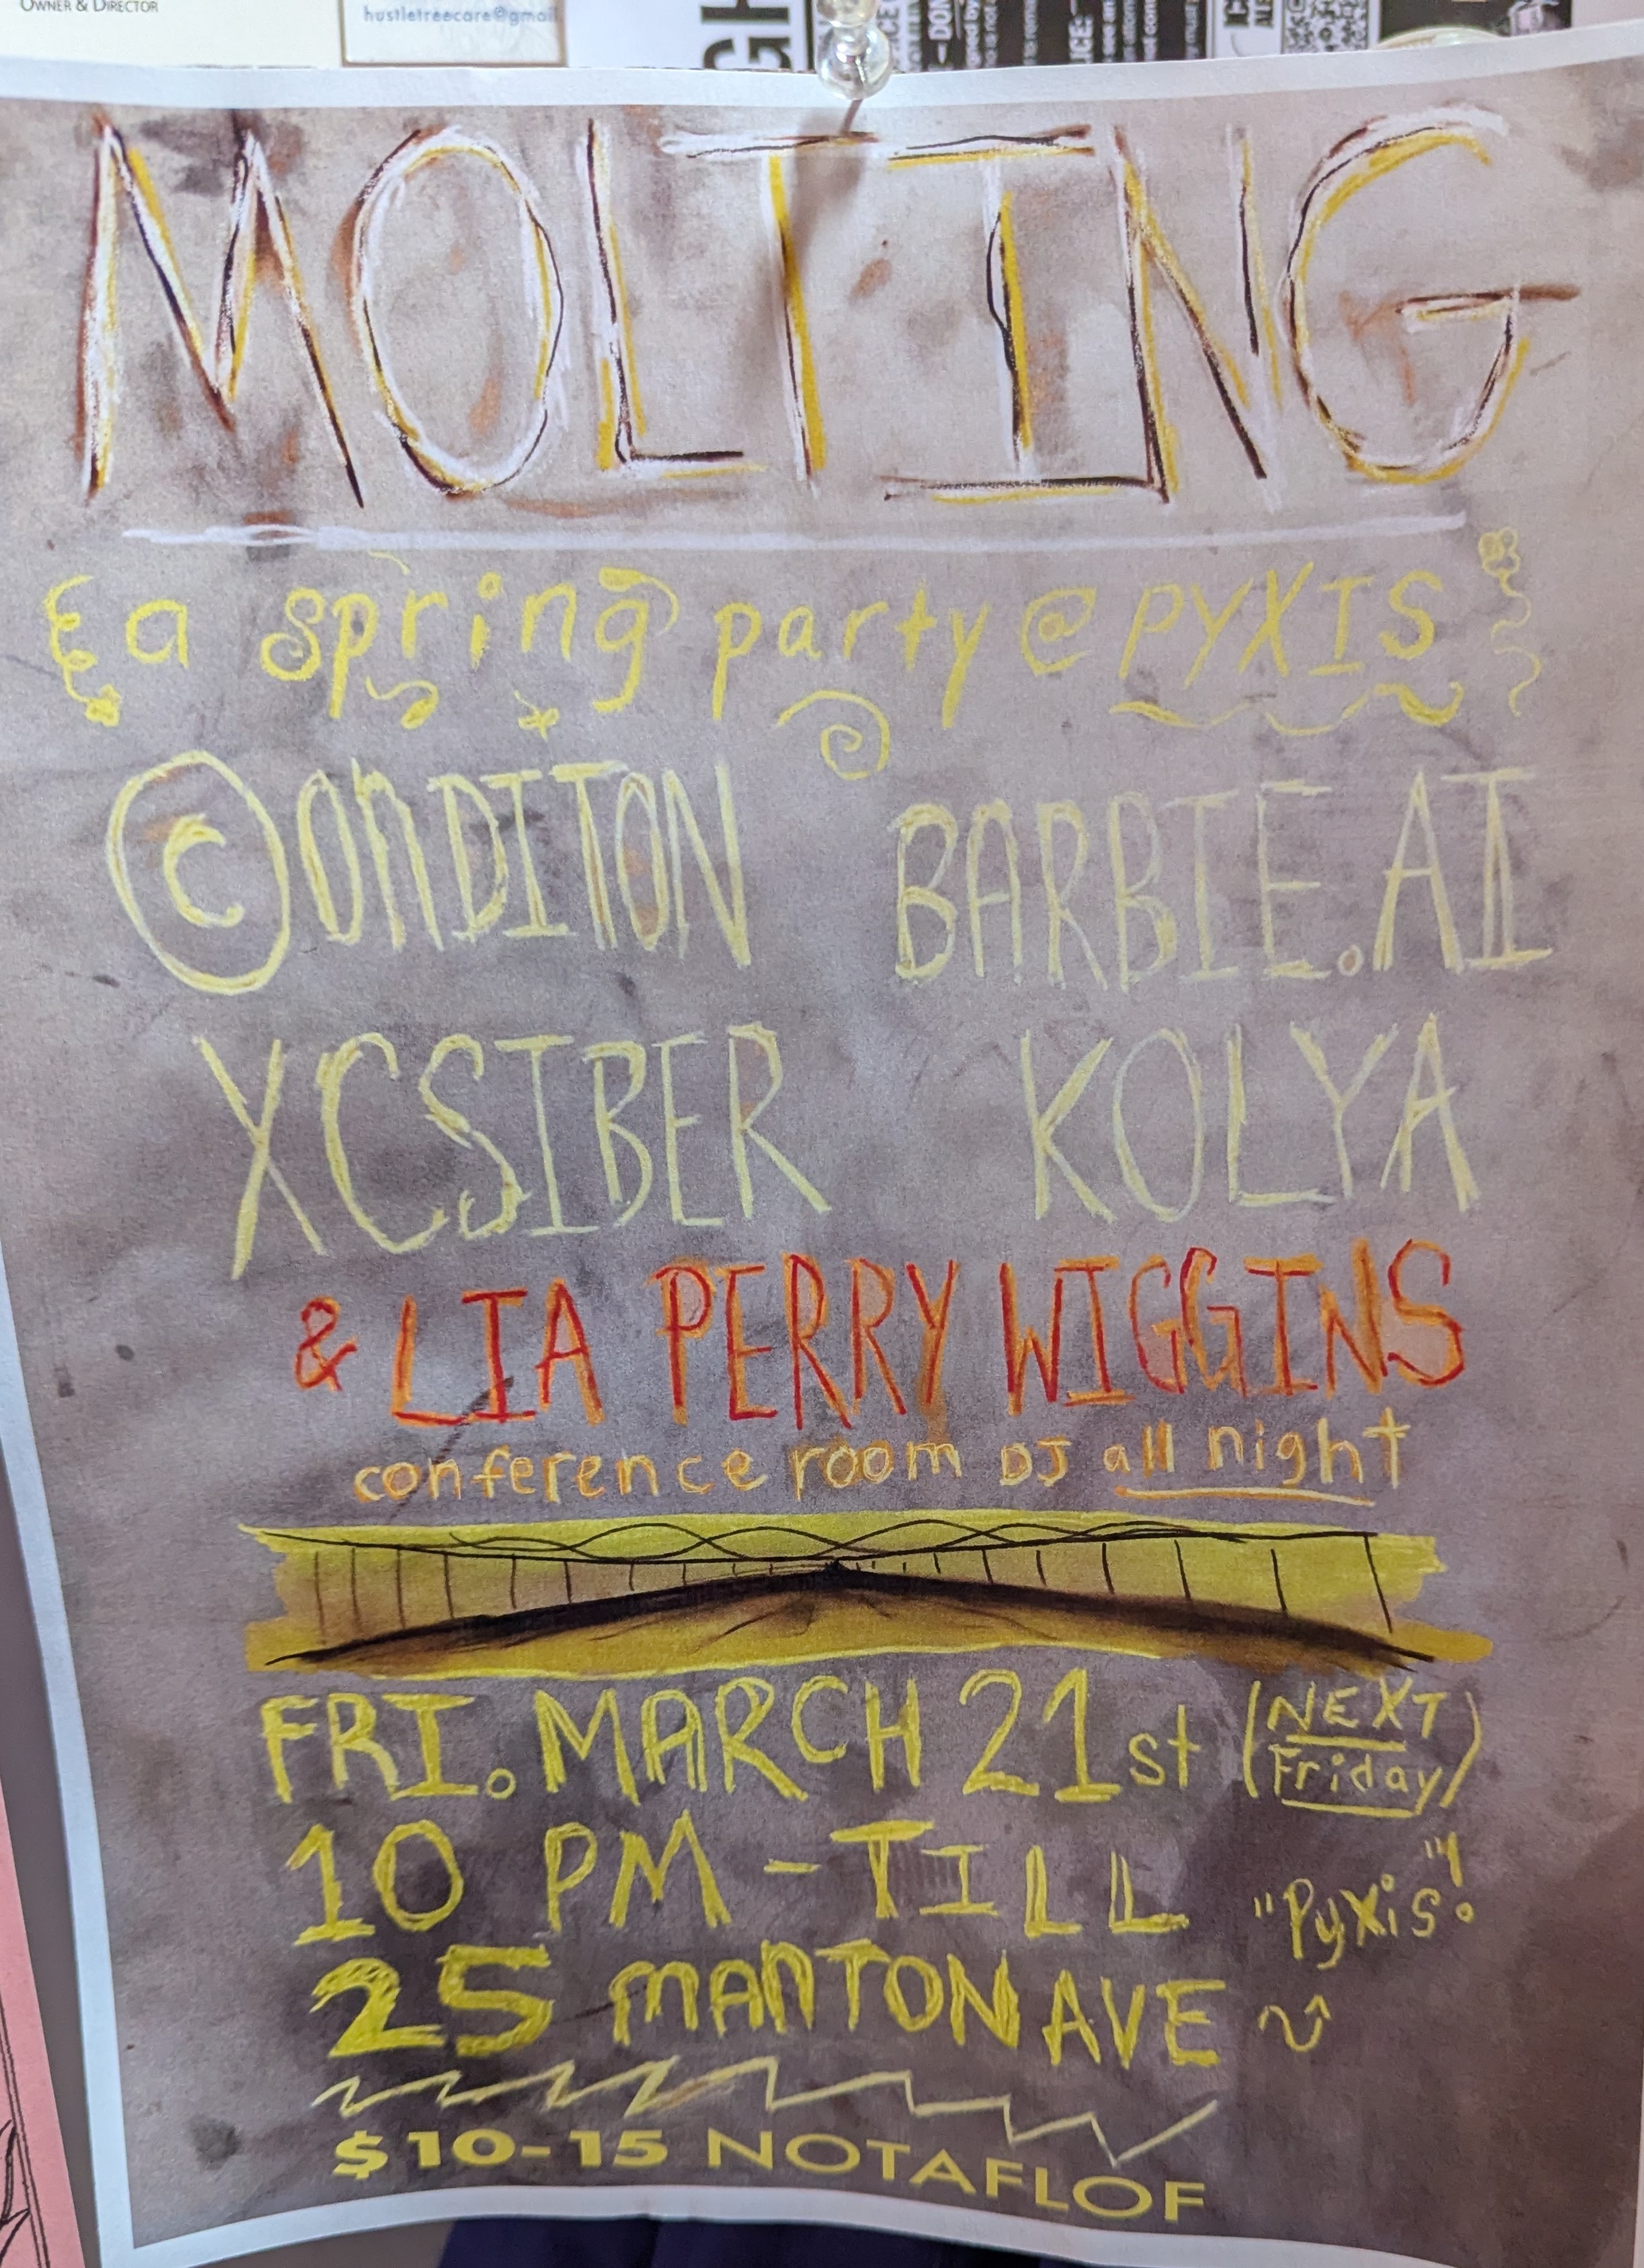 OWNER & DIRECTOR
hustletreecare@gmail
GH
MOLTING
a spring party @ PYXIS
©ONDITON BARBIE.AI
XCSIBER KOLYA
& LIA PERRY WIGGINS
conference room DJ all night
FRI. MARCH 21st (NEXT Friday)
10 PM - TILL
"Pyxis"!
25 MANTON AVE
$10-15 NOTAFLOF